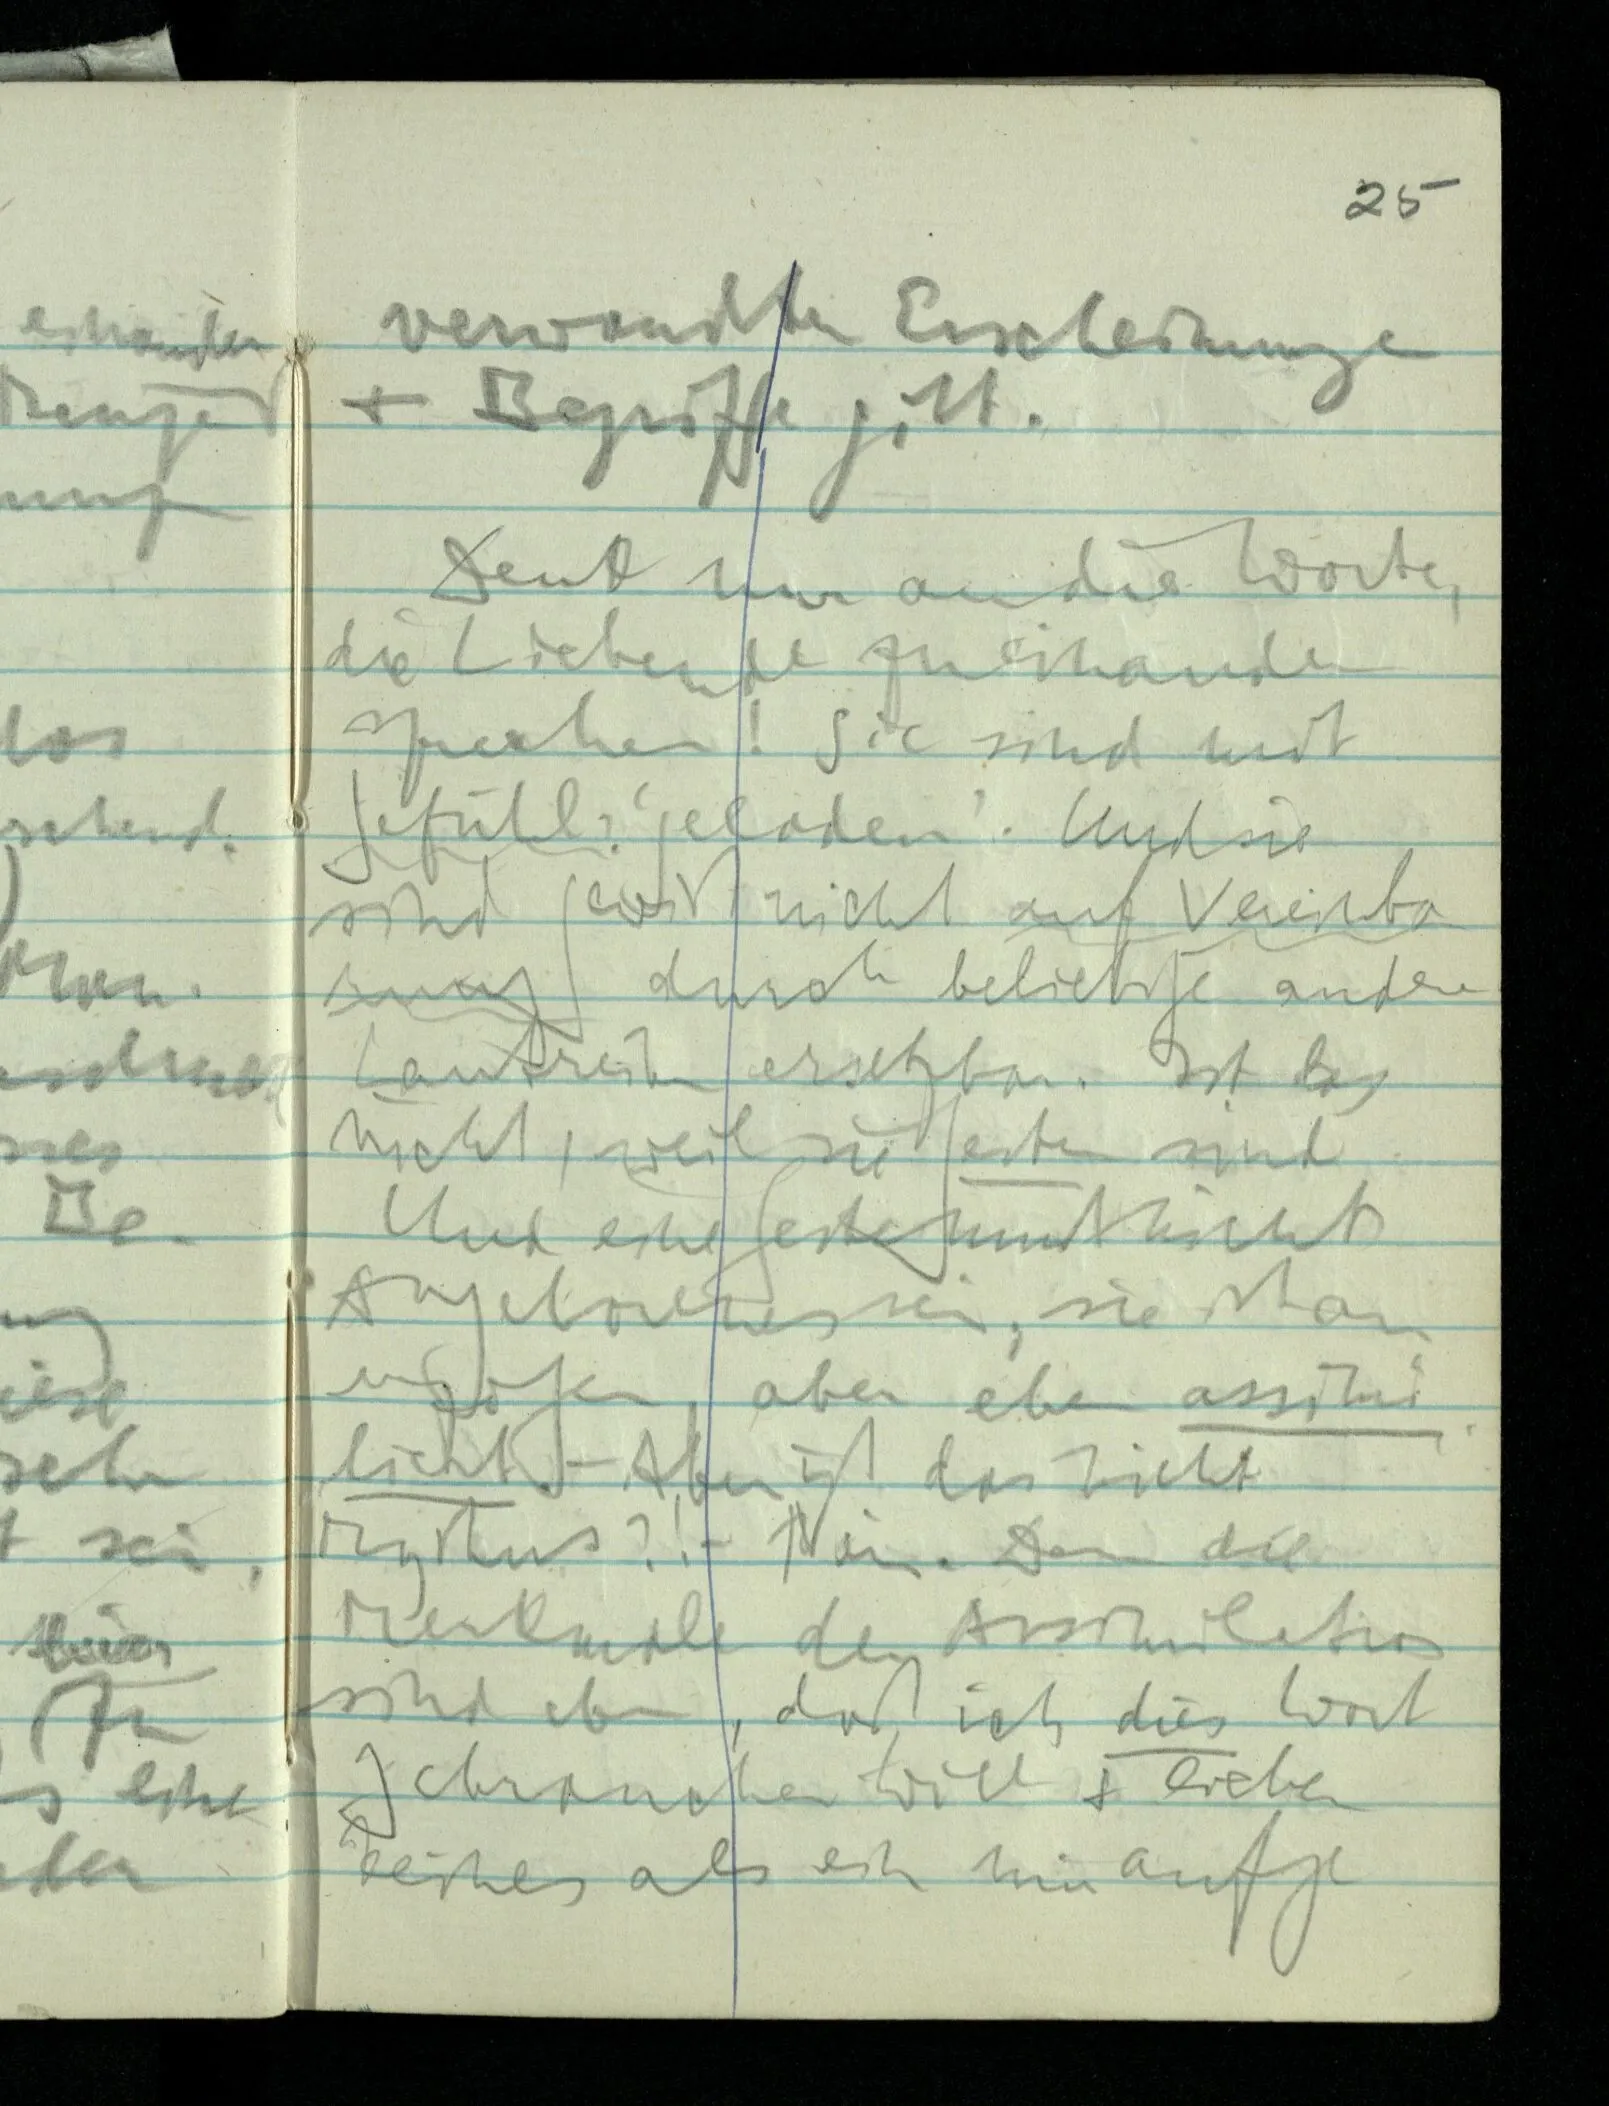 25
verwandten Erscheinungen
+ Begriffe gilt.
Denk nur an die Worte,
die Liebende zu einander
sprechen! Sie sind mit
Gefühl 'geladen'. Und sie
sind gewiß nicht auf Vereinba
rung durch beliebige andere
Lautreihen ersetzbar. Ist das
nicht, weil sie Gesten sind
Und eine Geste muß nichts
Angeborenes sein; sie ist an
erzogen, aber eben assimi
liert. – Aber ist das nicht
Mythus?! – Nein. Denn die
Merkmale der Assimilation
sind eben, daß ich dies Wort
gebrauchen will + lieber
keines als ein mir aufge
einander
das
Man.
Be-
diese
sein,
eine